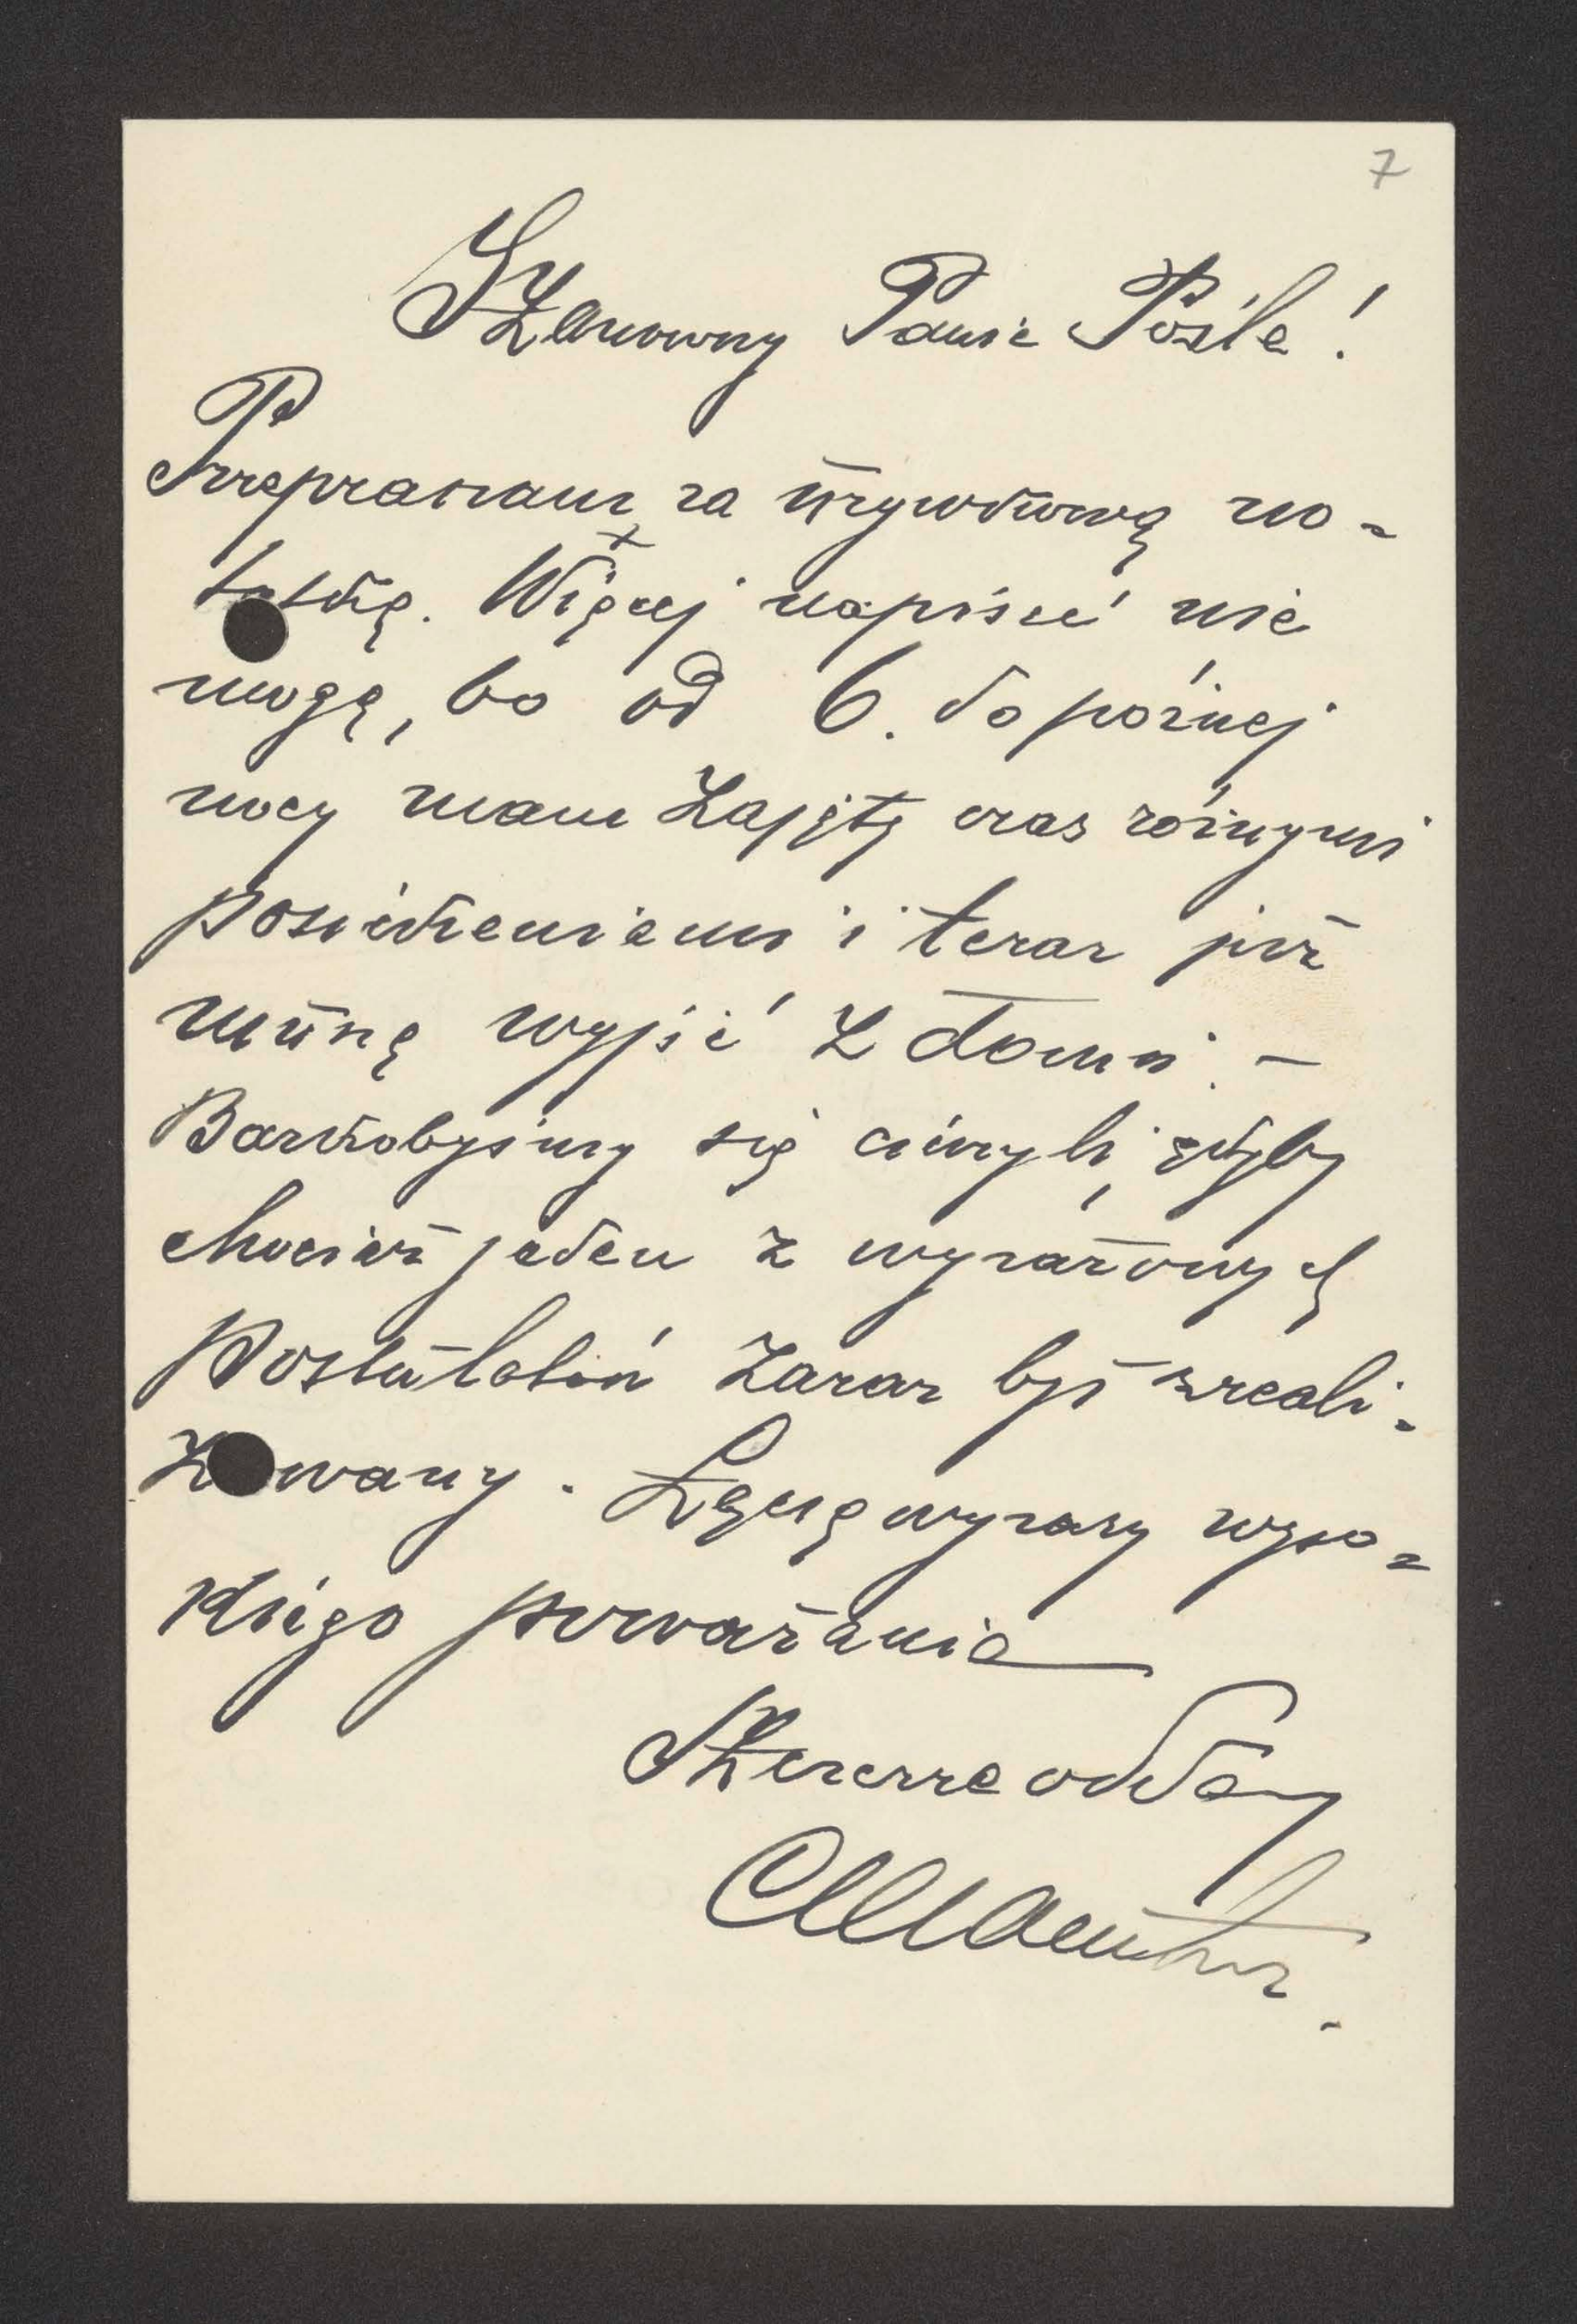 7
Szanowny Panie Pośle!
Przepraszam za urywkową no-
tatkę. Więcej napisać nie
mogę, bo od 6. do późnej
nocy mam zajęty czas różnymi
posiedzeniami i teraz już
muszę wyjść z domu. –
Bardzobyśmy się cieszyli, gdyby
chociaż jeden z wyrażonych
postulatów zaraz był zreali-
zowany. Łączę wyrazy wyso-
kiego poważania
Szczerze oddany